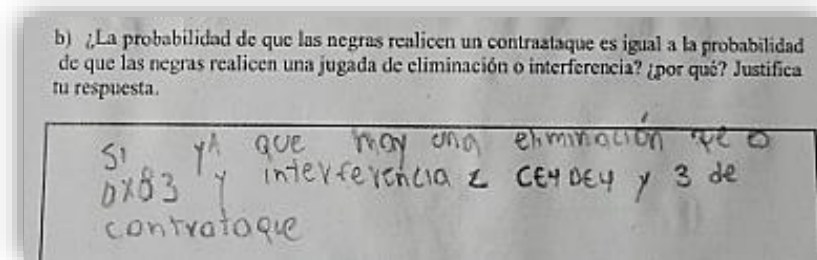 b) ¿La probabilidad de que las negras realicen un contraataque es igual a la probabilidad
de que las negras realicen una jugada de eliminación o interferencia? ¿por qué? Justifica
tu respuesta.
SI YA que may una eliminación
DXB3 y interferencia 2 CE4 DE4 y 3 de
contrataque